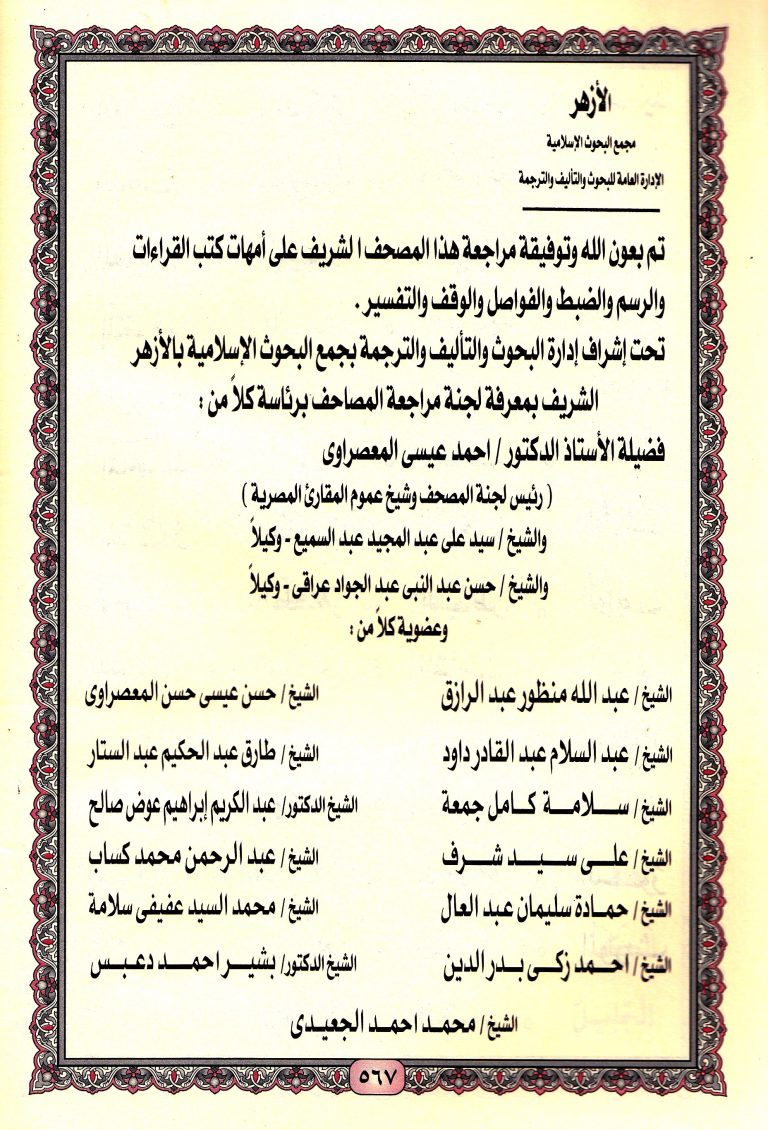 الأزهر
مجمع البحوث الإسلامية
الإدارة العامة للبحوث والتأليف والترجمة
تم بعون الله وتوفيقة مراجعة هذا المصحف الشريف على أمهات كتب القراءات
والرسم والضبط والفواصل والوقف والتفسير .
تحت إشراف إدارة البحوث والتأليف والترجمة بجمع البحوث الإسلامية بالأزهر
الشريف بمعرفة لجنة مراجعة المصاحف برئاسة كلاً من :
فضيلة الأستاذ الدكتور / احمد عيسى المعصراوى
( رئيس لجنة المصحف وشيخ عموم المقارئ المصرية )
والشيخ / سيد على عبد المجيد عبد السميع - وكيلاً
والشيخ / حسن عبد النبى عبد الجواد عراقى - وكيلاً
وعضوية كلاً من :
الشيخ / عبد الله منظور عبد الرازق الشيخ / حسن عيسى حسن المعصراوى
الشيخ / عبد السلام عبد القادر داود الشيخ / طارق عبد الحكيم عبد الستار
الشيخ / سلامة كامل جمعة الشيخ الدكتور / عبد الكريم إبراهيم عوض صالح
الشيخ / على سيد شرف الشيخ / عبد الرحمن محمد كساب
الشيخ / حمادة سليمان عبد العال الشيخ / محمد السيد عفيفى سلامة
الشيخ / احمد زكى بدر الدين الشيخ الدكتور / بشير احمد دعبس
الشيخ / محمد احمد الجعيدى
٥٦٧